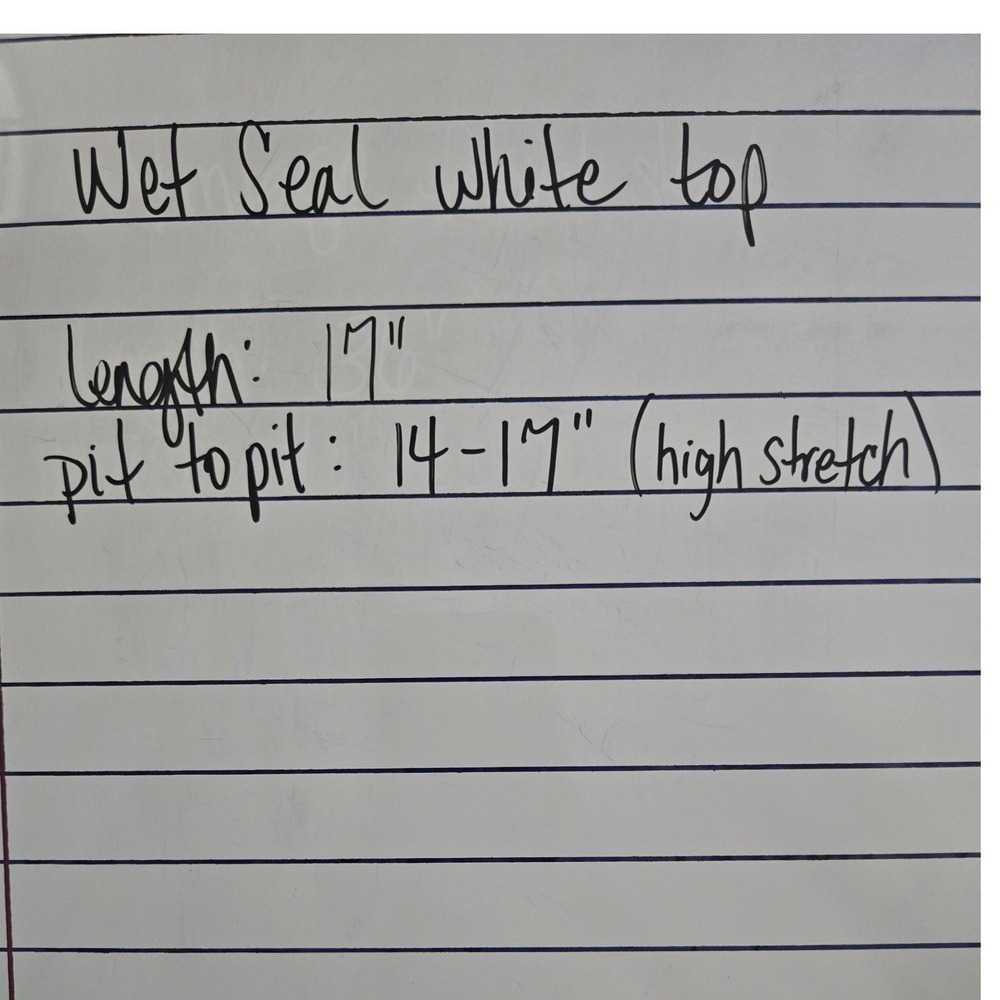 Wet Seal white top
length: 17"
pit to pit: 14-17" (high stretch)